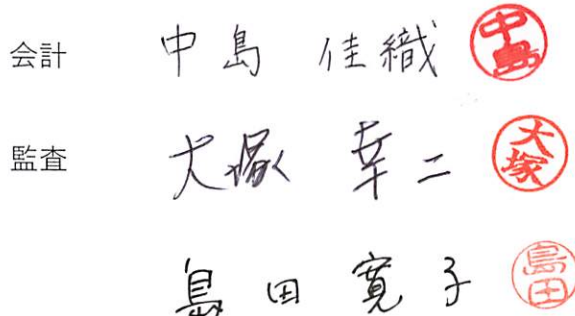 会計 中島 佳織 中島
監査 犬塚 幸二 犬塚
島田 寛子 島田